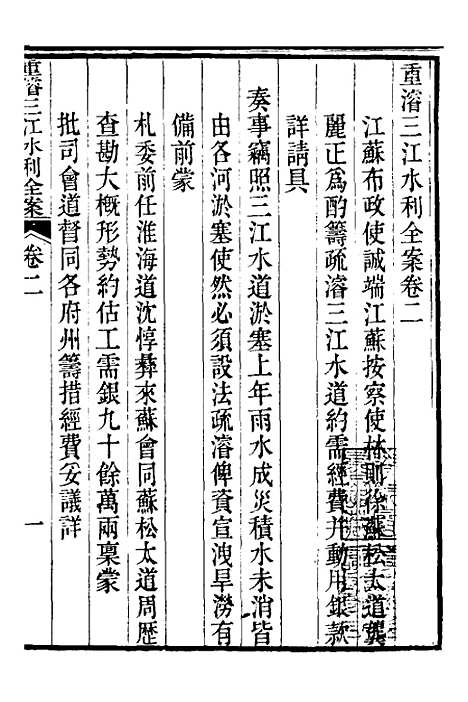 重濬三江水利全案卷二
江蘇布政使誠端江蘇按察使林則徐蘇松太道龔
麗正爲酌籌疏濬三江水道約需經費并動用銀款
詳請具
奏事竊照三江水道淤塞上年雨水成災積水未消皆
由各河淤塞使然必須設法疏濬俾資宣洩旱澇有
備前蒙
札委前任淮海道沈惇彝來蘇會同蘇松太道周歷
查勘大概形勢約估工需銀九十餘萬兩稟蒙
批司會道督同各府州籌措經費妥議詳
重濬三江水利全案
卷二
一